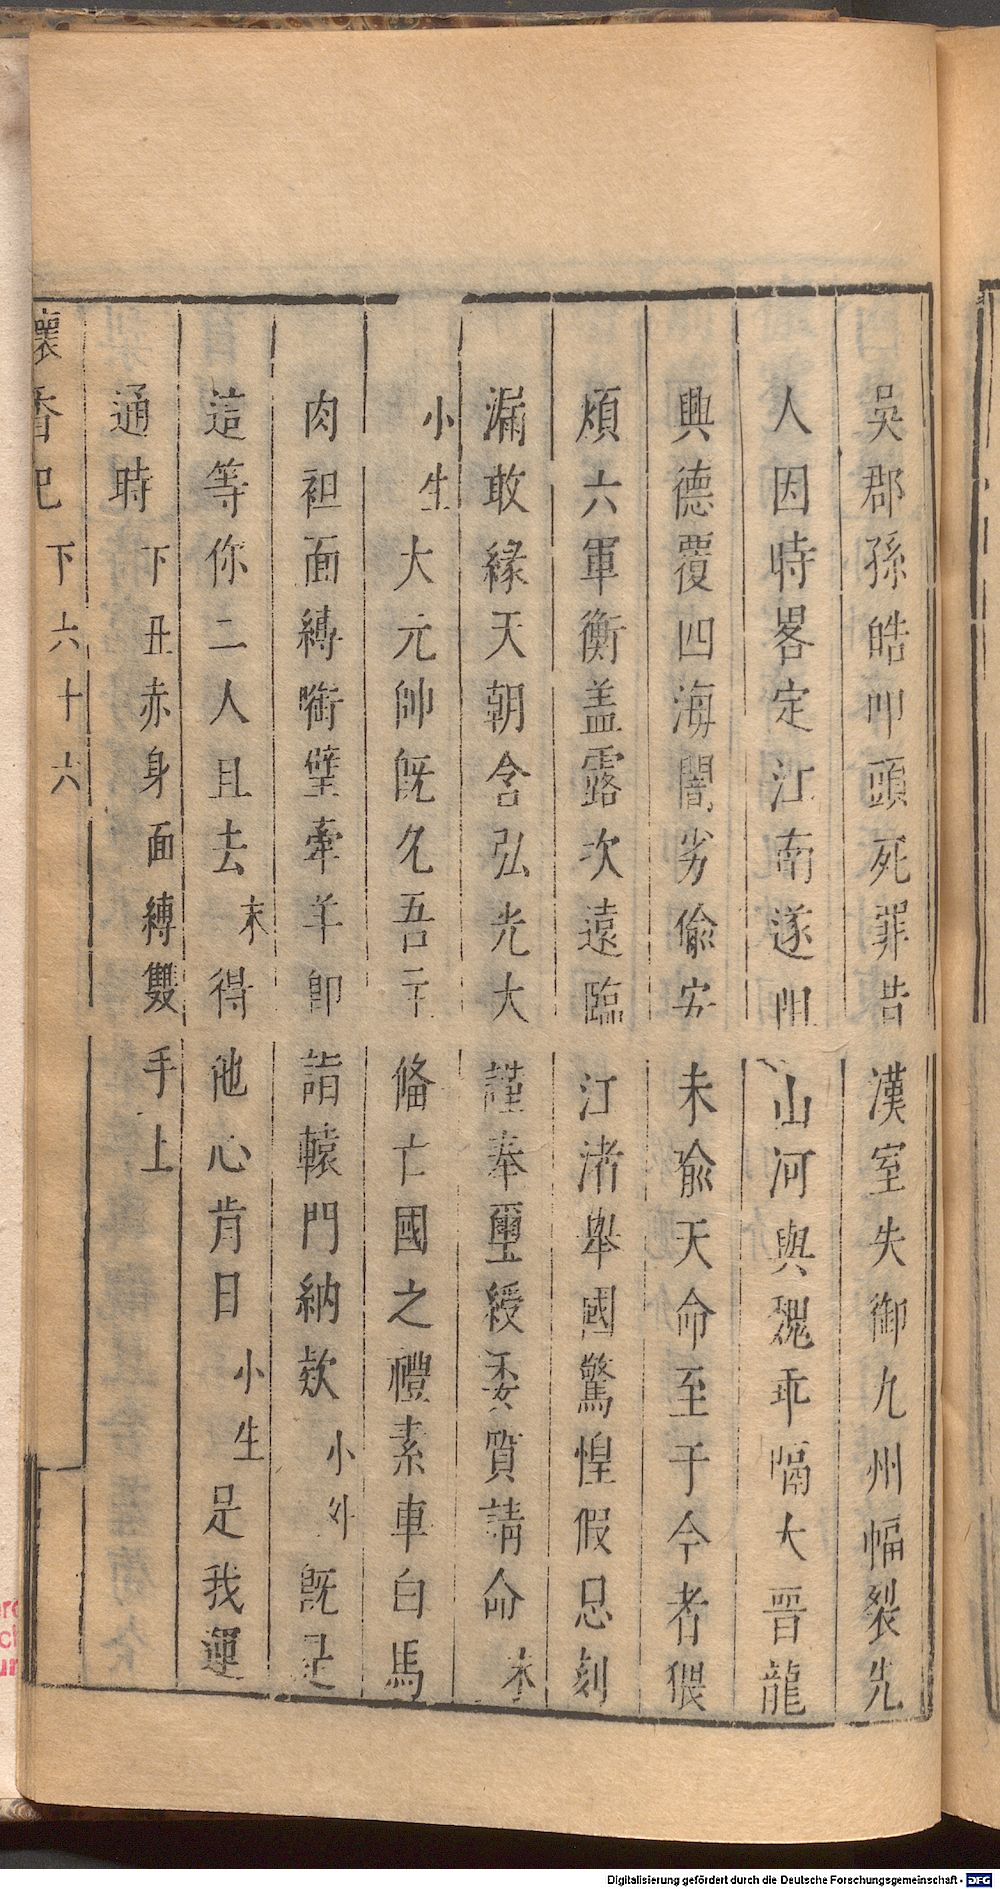 吳郡孫皓叩頭死罪告漢室失御九州幅裂先
人因時畧定江南遂阻山河與魏乖隔大晉龍
興德覆四海闇劣偸安未喻天命至于今者猥
煩六軍衡盖露次遠臨江渚舉國驚惶假息刻
漏敢緣天朝含弘光大謹奉璽綬委質請命末
小生大元帥旣久吾主俻亡國之禮素車白馬
肉袒面縛啣璧牽羊卽詣轅門納欵小外旣是
這等你二人且去末得他心肯日小生是我運
通時下丑赤身面縛雙手上
懷香記 下 六十六
Digitalisierung gefördert durch die Deutsche Forschungsgemeinschaft - DFG